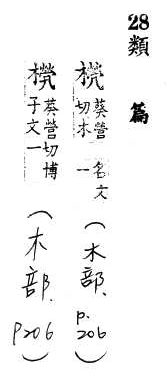 28類 篇
葵營切木名文一 (木部. p.206)
葵營切博子文一 (木部. p206)